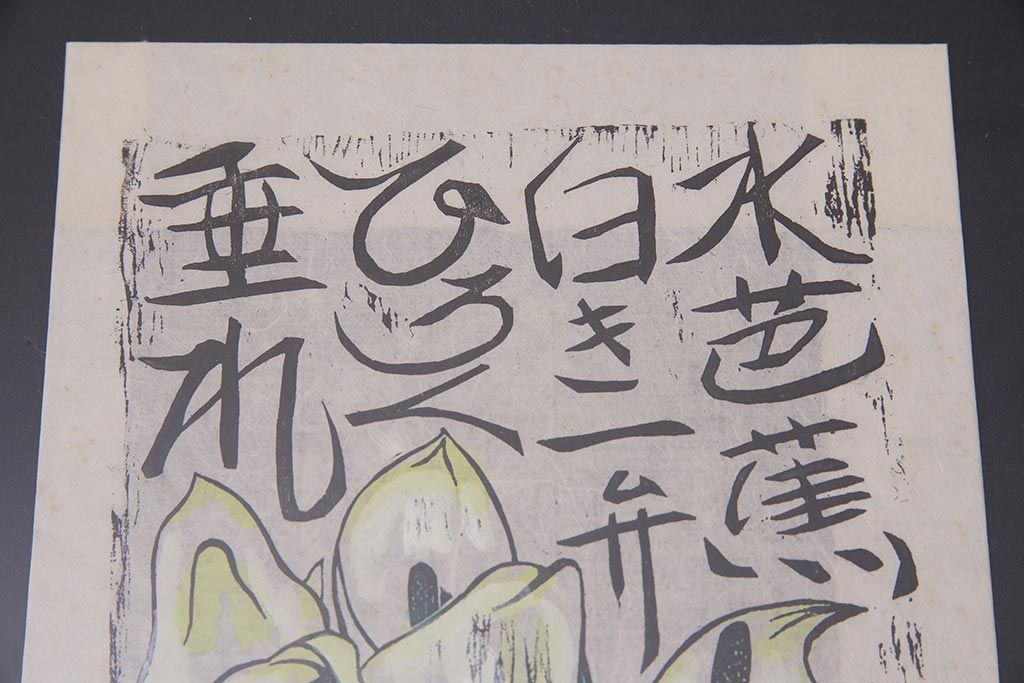 水芭蕉
白き一弁
ひろく
垂れ